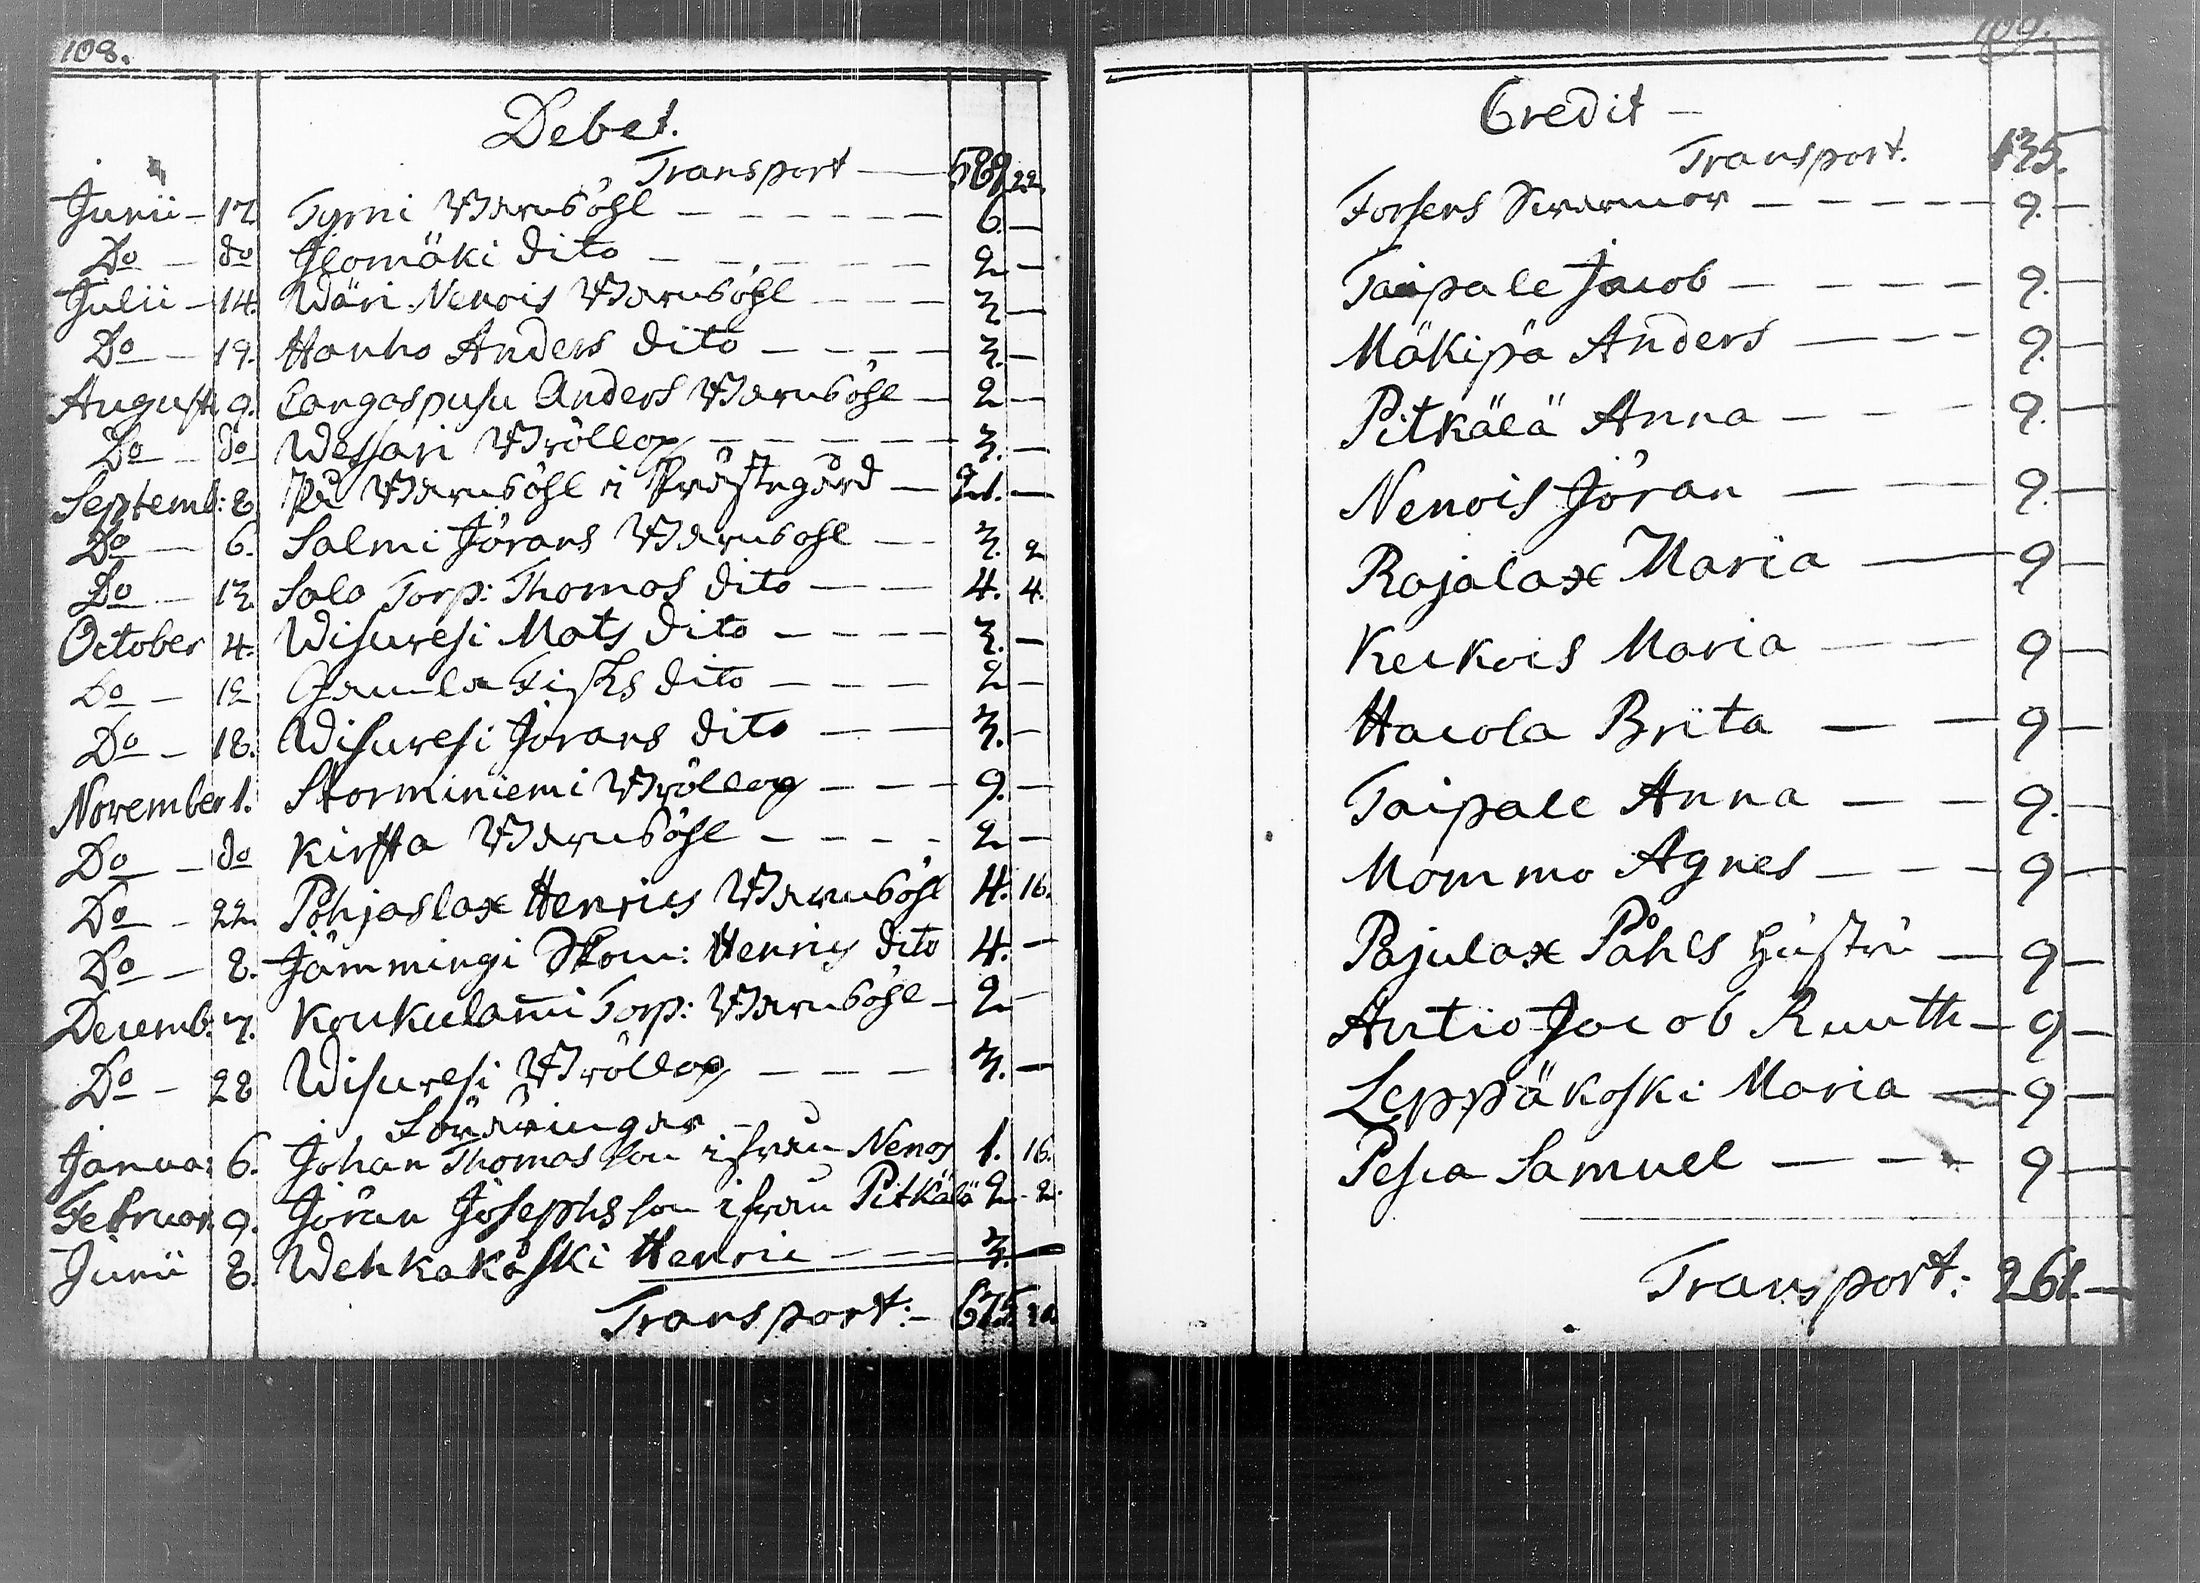 108.
Debet.
Transport — 589 22.
Junii — 17. Tyrni Barnsöhl — 6. —
Do — do Ilomäki dito — 2 —
Julii — 14. Wäri Nenois Barnsöhl — 3 —
Do — 19. Hanho Anders dito — 3. —
Augusti 9. Langaspusu Anders Barnsöhl — 2 —
Do — do Wessari Bröllop — 3. —
Septemb: 8. På Barnsöhl i Prästegård — 21. —
Do — 6. Salmi Jörans Barnsöhl — 3. 2
Do — 13. Salo Torp: Thomas dito — 4. 4.
October 4. Wisuresi Mats dito — 3. —
Do — 12 Gamla Fisks dito — 2 —
Do — 18. Wisuresi Jörans dito — 3. —
November 1. Storminiemi Bröllop — 9. —
Do — do Kirsta Barnsöhl — 2 —
Do — 22. Pohjaslax Henrics Barnsöhl 4. 16.
Do — 8. Jämmingi Skom: Henrics dito 4. —
Decemb: 7. Koukulammi Torp: Barnsöhl — 2 —
Do — 28 Wisuresi Bröllop — 3. —
Föräringar
Janua: 6. Johan Thomas son ifrån Nenos 1. 16.
Februar. 9. Jöran Josephs son ifrån Pitkälä 2. 2.
Junii 8. Wehkakoski Henric — 3. —
Transport: — 675.
109.
Credit —
Transport. 135.
Forsens Swärmor — 9. —
Taipale Jacob — 9. —
Mäkipä Anders — 9. —
Pitkälä Anna — 9. —
Nenois Jöran — 9. —
Rajalax Maria — 9 —
Keckois Maria — 9 —
Hacola Brita — 9 —
Taipale Anna — 9. —
Mommo Agnes — 9 —
Pajulax Påhls hustru — 9 —
Antio Jacob Ruuth — 9 —
Leppäkoski Maria — 9 —
Pesca Samuel — 9 —
Transport: 261. —